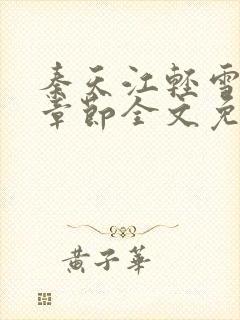 秦天江轻雪
章节全文免
黄子華